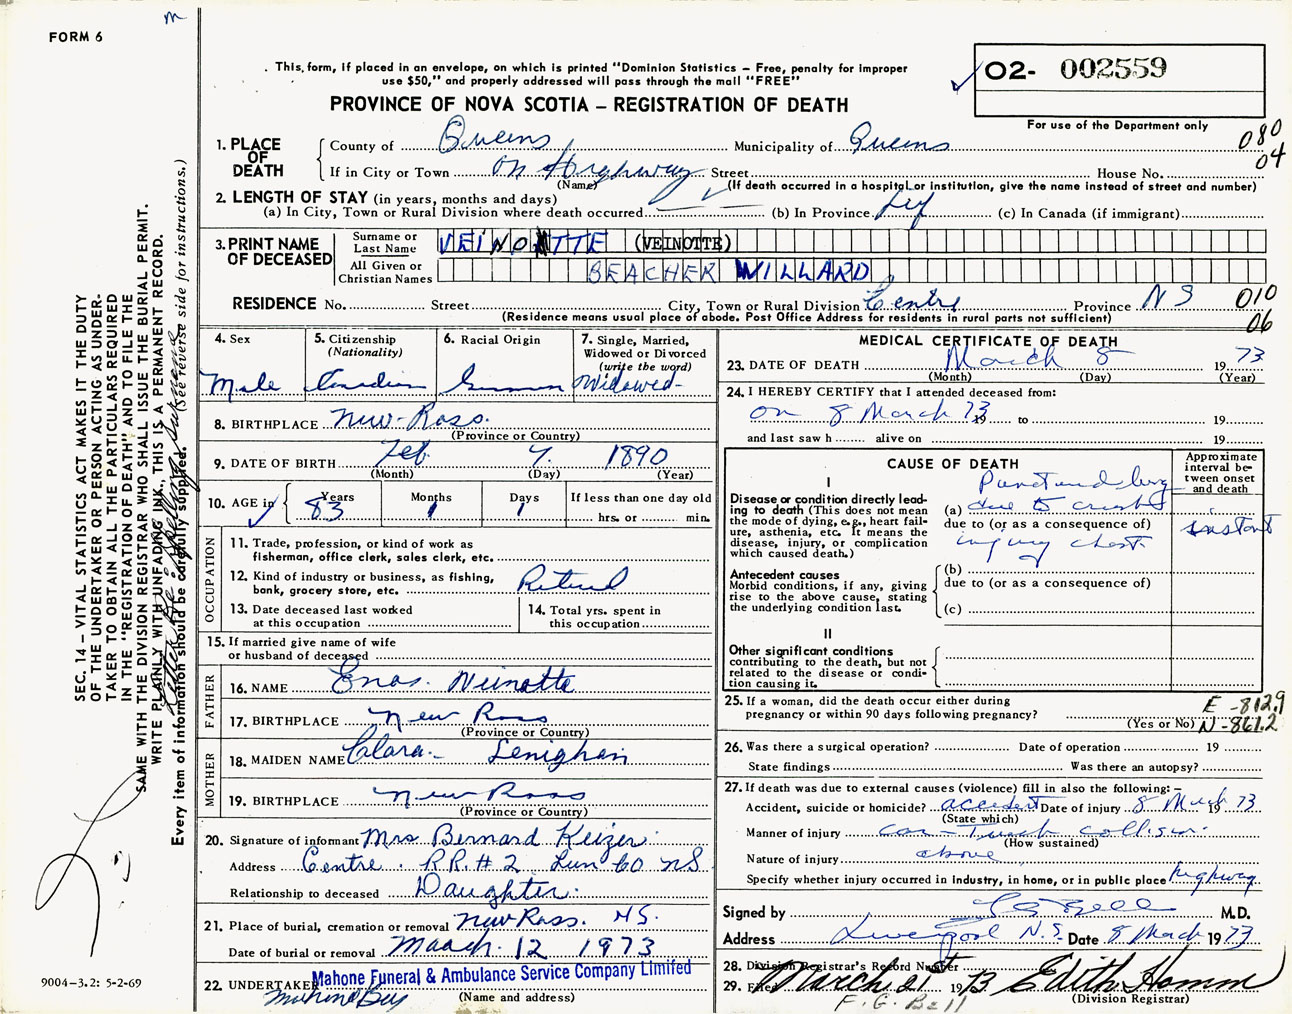 m
FORM 6
This form, if placed in an envelope, on which is printed "Dominion Statistics – Free, penalty for improper
use $50," and properly addressed will pass through the mail "FREE"
PROVINCE OF NOVA SCOTIA – REGISTRATION OF DEATH
02- 002559
For use of the Department only
080
04
1. PLACE OF DEATH
County of Queens Municipality of Queens
If in City or Town on Highway Street House No.
(Name) (If death occurred in a hospital or institution, give the name instead of street and number)
2. LENGTH OF STAY (in years, months and days)
(a) In City, Town or Rural Division where death occurred (b) In Province Life (c) In Canada (if immigrant)
3. PRINT NAME OF DECEASED
Surname or Last Name VEINOTTE (VEINOTTE)
All Given or Christian Names BEACHER WILLARD
RESIDENCE No. Street City, Town or Rural Division Centre Province N S 010
(Residence means usual place of abode. Post Office Address for residents in rural parts not sufficient) 06
4. Sex
Male
5. Citizenship
(Nationality)
Canadian
6. Racial Origin
German
7. Single, Married,
Widowed or Divorced
(write the word)
Widowed
8. BIRTHPLACE New-Ross.
(Province or Country)
9. DATE OF BIRTH Feb 7. 1890
(Month) (Day) (Year)
10. AGE in Years Months Days If less than one day old
83 1 1 hrs. or min.
OCCUPATION
11. Trade, profession, or kind of work as
fisherman, office clerk, sales clerk, etc.
12. Kind of industry or business, as fishing,
bank, grocery store, etc. Retired
13. Date deceased last worked
at this occupation
14. Total yrs. spent in
this occupation
15. If married give name of wife
or husband of deceased
FATHER
16. NAME Enos. Veinotte
17. BIRTHPLACE New Ross
(Province or Country)
MOTHER
18. MAIDEN NAME Clara- Lenighan
19. BIRTHPLACE New Ross
(Province or Country)
20. Signature of informant Mrs Bernard Keizer
Address Centre. R.R.#2 Lun Co NS
Relationship to deceased Daughter.
21. Place of burial, cremation or removal New Ross. N.S.
Date of burial or removal March. 12 1973
22. UNDERTAKER Mahone Funeral & Ambulance Service Company Limited
Mahone Bay (Name and address)
MEDICAL CERTIFICATE OF DEATH
23. DATE OF DEATH March 8 1973
(Month) (Day) (Year)
24. I HEREBY CERTIFY that I attended deceased from:
on 8 March 73 19 to 19
and last saw h alive on 19
CAUSE OF DEATH
Approximate interval between onset and death
I
Disease or condition directly lead-
ing to death (This does not mean
the mode of dying, e.g., heart fail-
ure, asthenia, etc. It means the
disease, injury, or complication
which caused death.)
Punctured lung
(a) due to crushed
due to (or as a consequence of)
injury chest
instant
Antecedent causes
Morbid conditions, if any, giving
rise to the above cause, stating
the underlying condition last.
(b)
due to (or as a consequence of)
(c)
II
Other significant conditions
contributing to the death, but not
related to the disease or condi-
tion causing it.
25. If a woman, did the death occur either during
pregnancy or within 90 days following pregnancy?
(Yes or No)
E -812.9
N -861.2
26. Was there a surgical operation? Date of operation 19
State findings Was there an autopsy?
27. If death was due to external causes (violence) fill in also the following:–
Accident, suicide or homicide? accident Date of injury 8 March 1973
(State which)
Manner of injury car - Truck collision.
(How sustained)
Nature of injury above
Specify whether injury occurred in industry, in home, or in public place highway
Signed by F G Bell M.D.
Address Liverpool N.S. Date 8 March 1973
28. Division Registrar's Record Number
29. Filed March 21st 1973 Edith Hamm
F. G. Bell (Division Registrar)
SEC. 14 – VITAL STATISTICS ACT MAKES IT THE DUTY
OF THE UNDERTAKER OR PERSON ACTING AS UNDER-
TAKER TO OBTAIN ALL THE PARTICULARS REQUIRED
IN THE "REGISTRATION OF DEATH" AND TO FILE THE
SAME WITH THE DIVISION REGISTRAR WHO SHALL ISSUE THE BURIAL PERMIT.
WRITE PLAINLY WITH UNFADING INK, THIS IS A PERMANENT RECORD.
Every item of information should be carefully supplied. (See reverse side for instructions.)
Letter Re: spelling surname
9004–3.2: 5-2-69